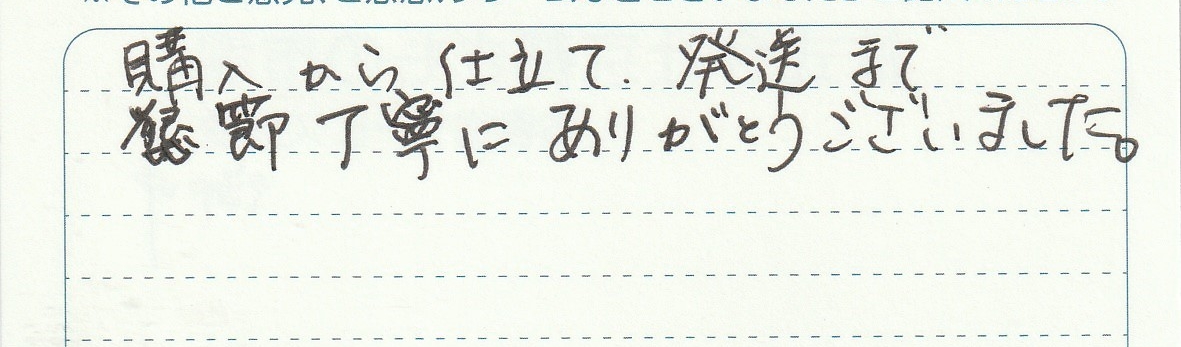 購入から仕立て、発送まで
懇節丁寧にありがとうございました。